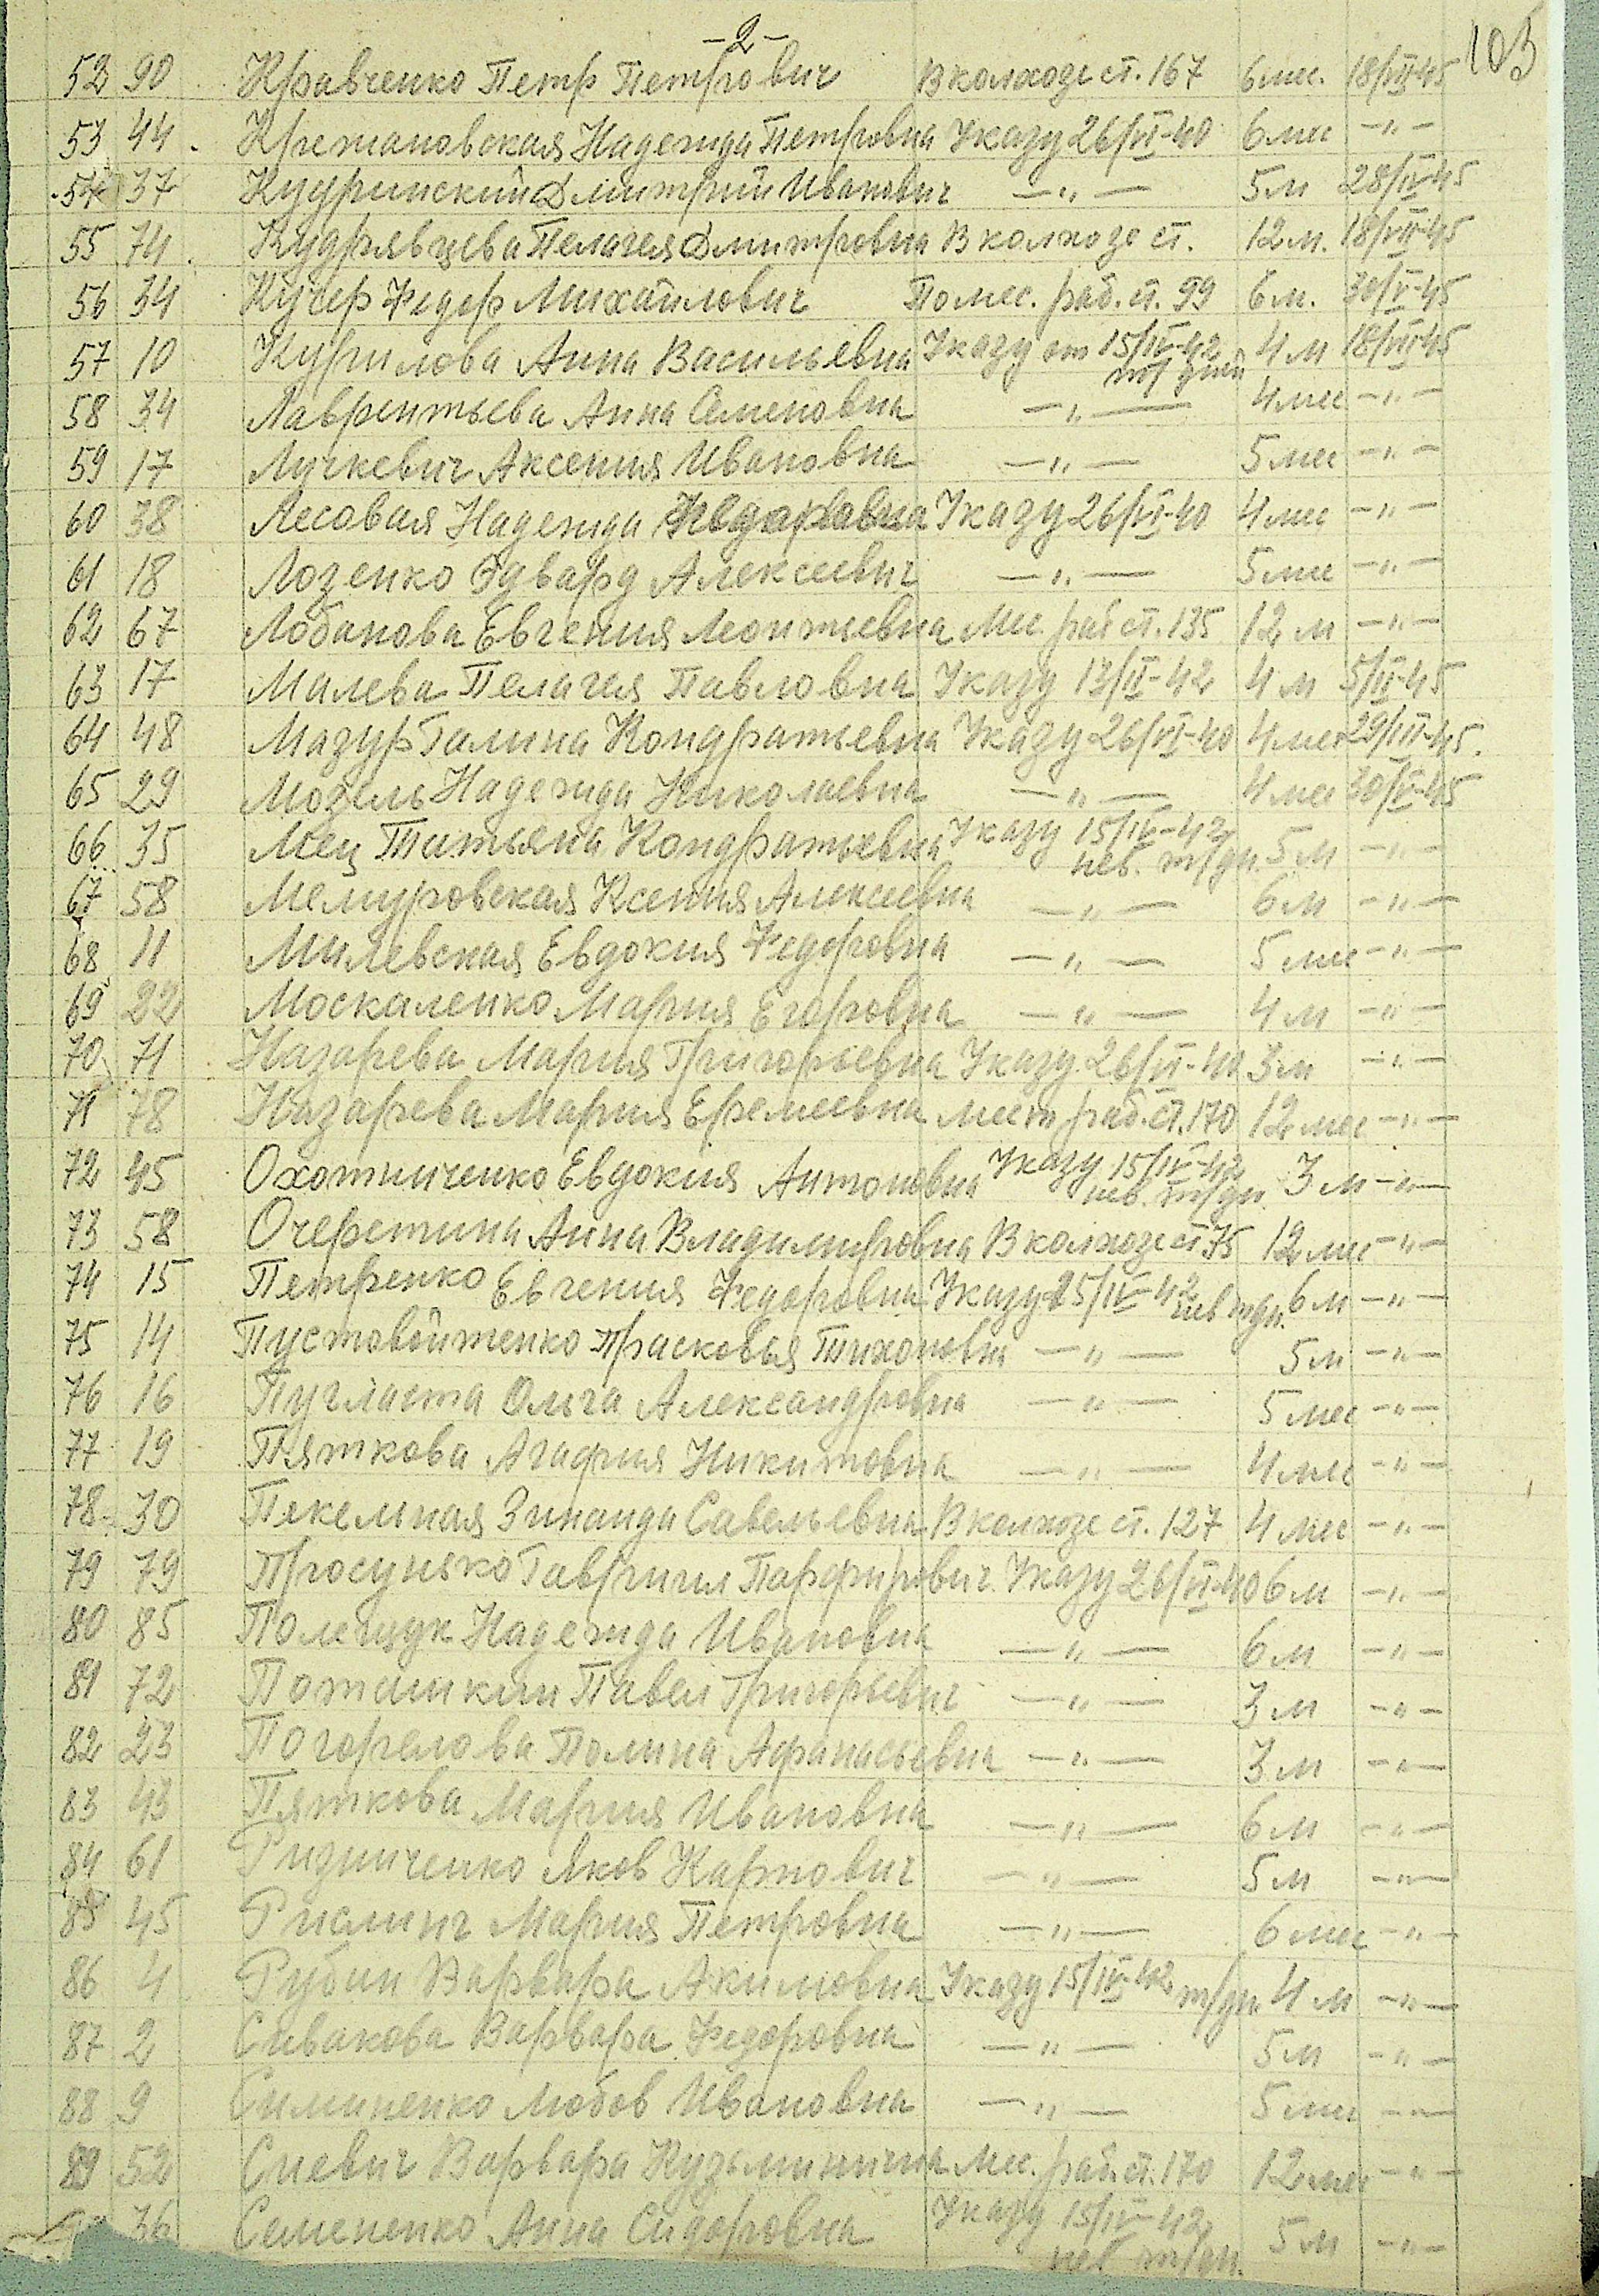 -2-
103
52 90 Кравченко Петр Петрович В колхозе ст. 167 6 мес. 18/VII-45
53 44. Кржановская Надежда Петровна Указу 26/VI-40 6 мес -"-
54 37 Кудринский Дмитрий Иванович -"- 5 м 28/IV-45
55 74. Кудрявцева Пелагея Дмитровна В колхозе ст. 12 м. 18/VII-45
56 34 Кучер Федор Михайлович По мес. раб. ст. 99 6 м. 30/V-45
57 10 Курилова Анна Васильевна Указу от 15/IV-42 4 м 18/VII-45
тр/дней
58 34 Лаврентьева Анна Семеновна -"- 4 мес -"-
59 17 Лучкевич Аксения Ивановна -"- 5 мес -"-
60 38 Лесовая Надежда Указу 26/VI-40 4 мес -"-
61 18 Лозенко Эдвард Алексеевич -"- 5 мес -"-
62 67 Лобанова Евгения Леонтьевна Мес. раб ст. 135 12 м -"-
63 17 Малева Пелагея Павловна Указу 13/II-42 4 м 5/II-45
64 48 Мазур Галина Кондратьевна Указу 26/VI-40 4 мес 29/III-45.
65 29 Мозель Надежда Николаевна -"- 4 мес 30/V-45
66 35 Мец Татьяна Кондратьевна Указу 15/IV-42 5 м -"-
нев. тр/дн.
67 58 Мемуровская Ксения Алексеевна -"- 6 м -"-
68 11 Милевская Евдокия Федоровна -"- 5 мес -"-
69 22 Москаленко Мария Егоровна -"- 4 м -"-
70 71 Назарева Мария Григорьевна Указу 26/VI-40 3 м -"-
71 78 Назарева Мария Еремеевна мест раб. ст. 170 12 мес -"-
72 45 Охотниченко Евдокия Антоновна Указу 15/IV-42 3 м -"-
нев. тр/дн.
73 58 Очеретина Анна Владимировна В колхозе ст 75 12 мес -"-
74 15 Петренко Евгения Федоровна Указу 15/IV-42 нев тр/дн. 6 м -"-
75 14 Пустовойтенко Прасковья Тихоновна -"- 5 м -"-
76 16 Ольга Александровна -"- 5 мес -"-
77 19 Пяткова Агафия Никитовна -"- 4 мес -"-
78 30 Пекельная Зинаида Савельевна В колхозе ст. 127 4 мес -"-
79 79 Просунько Гавриил Парфирович Указу 26/VI-40 6 м -"-
80 85 Полещук Надежда Ивановна -"- 6 м -"-
81 72 Поташкин Павел Григорьевич -"- 3 м -"-
82 23 Погорелова Полина Афанасьевна -"- 3 м -"-
83 43 Пяткова Мария Ивановна -"- 6 м -"-
84 61 Ризниченко Яков Карпович -"- 5 м -"-
85 45 Мария Петровна -"- 6 мес -"-
86 4 Рубин Варвара Акимовна Указу 15/IV-42 тр/дн 4 м -"-
87 2 Сивакова Варвара Федоровна -"- 5 м -"-
88 9 Симиненко Любов Ивановна -"- 5 мес -"-
89 52 Сневич Варвара Кузьминична Мес. раб. ст. 170 12 мес -"-
36 Семененко Анна Сидоровна Указу 15/IV-42 5 м -"-
нев тр/дн.